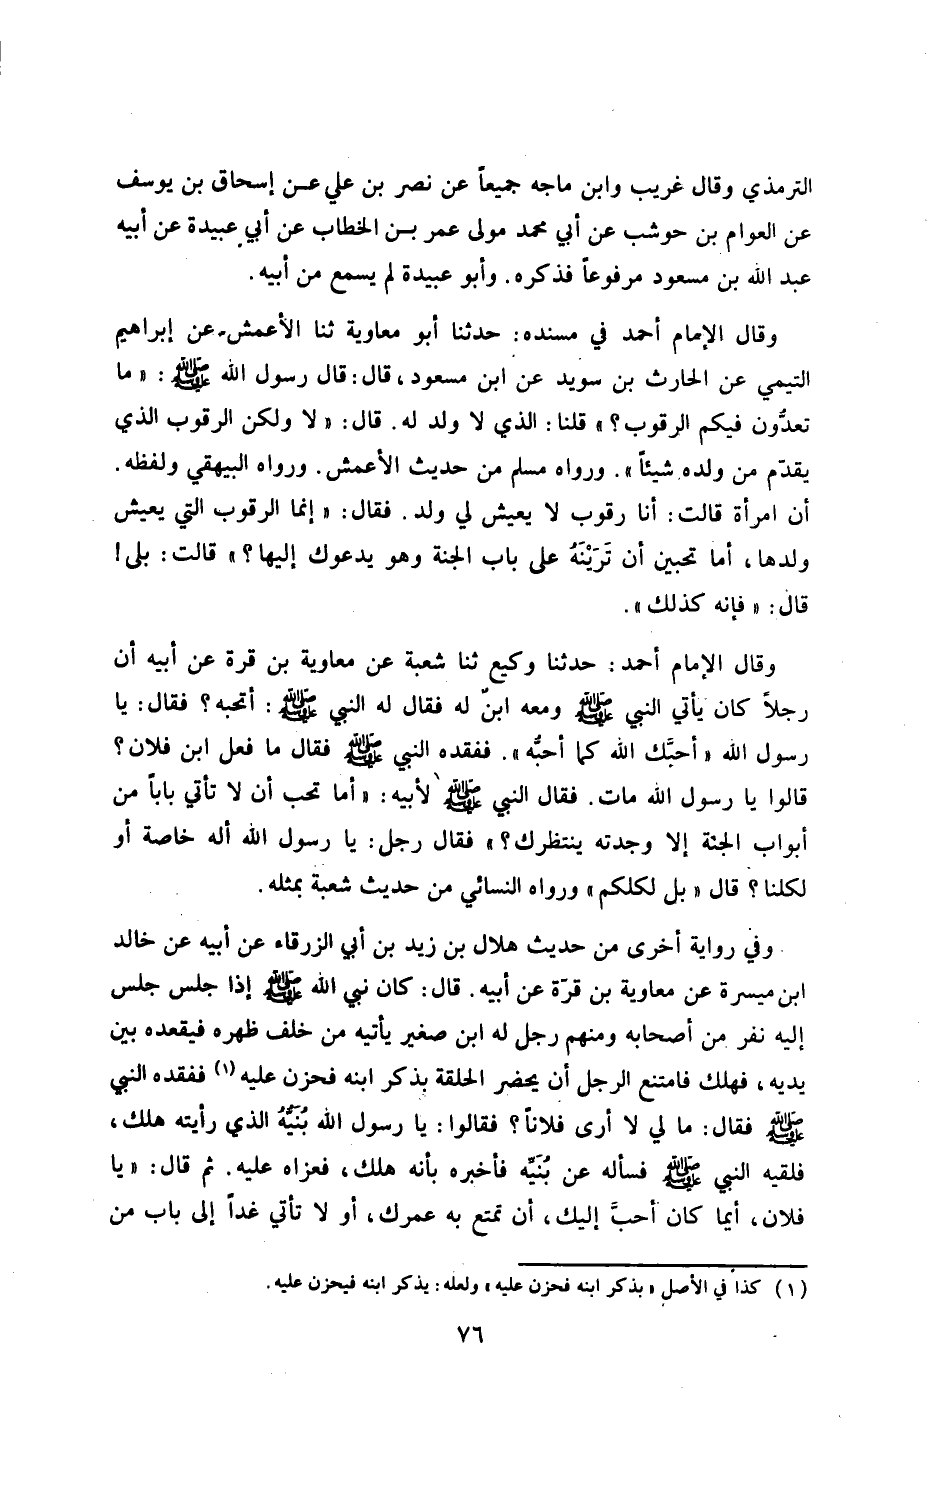 الترمذي وقال غريب وابن ماجه جميعاً عن نصر بن علي عـن إسحاق بن يوسف
عن العوام بن حوشب عن أبي محمد مولى عمر بـن الخطاب عن أبي عبيدة عن أبيه
عبد الله بن مسعود مرفوعاً فذكره. وأبو عبيدة لم يسمع من أبيه.
وقال الإمام أحمد في مسنده: حدثنا أبو معاوية ثنا الأعمش عن إبراهيم
التيمي عن الحارث بن سويد عن ابن مسعود، قال: قال رسول الله ﷺ: «ما
تعدُّون فيكم الرقوب؟» قلنا: الذي لا ولد له. قال: «لا ولكن الرقوب الذي
يقدّم من ولده شيئاً». ورواه مسلم من حديث الأعمش. ورواه البيهقي ولفظه.
أن امرأة قالت: أنا رقوب لا يعيش لي ولد. فقال: «إنما الرقوب التي يعيش
ولدها، أما تحبين أن تَرَيْنَهُ على باب الجنة وهو يدعوك إليها؟» قالت: بلى!
قال: «فإنه كذلك».
وقال الإمام أحمد: حدثنا وكيع ثنا شعبة عن معاوية بن قرة عن أبيه أن
رجلاً كان يأتي النبي ﷺ ومعه ابنٌ له فقال له النبي ﷺ: أتحبه؟ فقال: يا
رسول الله «أحبَّك الله كما أحبُّه». ففقده النبي ﷺ فقال ما فعل ابن فلان؟
قالوا يا رسول الله مات. فقال النبي ﷺ لأبيه: «أما تحب أن لا تأتي باباً من
أبواب الجنة إلا وجدته ينتظرك؟» فقال رجل: يا رسول الله أله خاصة أو
لكلنا؟ قال «بل لكلكم» ورواه النسائي من حديث شعبة بمثله.
وفي رواية أخرى من حديث هلال بن زيد بن أبي الزرقاء عن أبيه عن خالد
ابن ميسرة عن معاوية بن قرّة عن أبيه. قال: كان نبي الله ﷺ إذا جلس جلس
إليه نفر من أصحابه ومنهم رجل له ابن صغير يأتيه من خلف ظهره فيقعده بين
يديه، فهلك فامتنع الرجل أن يحضر الحلقة بذكر ابنه فحزن عليه (١) ففقده النبي
ﷺ فقال: ما لي لا أرى فلاناً؟ فقالوا: يا رسول الله بُنَيُّهُ الذي رأيته هلك،
فلقيه النبي ﷺ فسأله عن بُنَيِّه فأخبره بأنه هلك، فعزاه عليه. ثم قال: «يا
فلان، أيما كان أحبَّ إليك، أن تمتع به عمرك، أو لا تأتي غداً إلى باب من
(١) كذا في الأصل «بذكر ابنه فحزن عليه» ولعله: يذكر ابنه فيحزن عليه.
٧٦